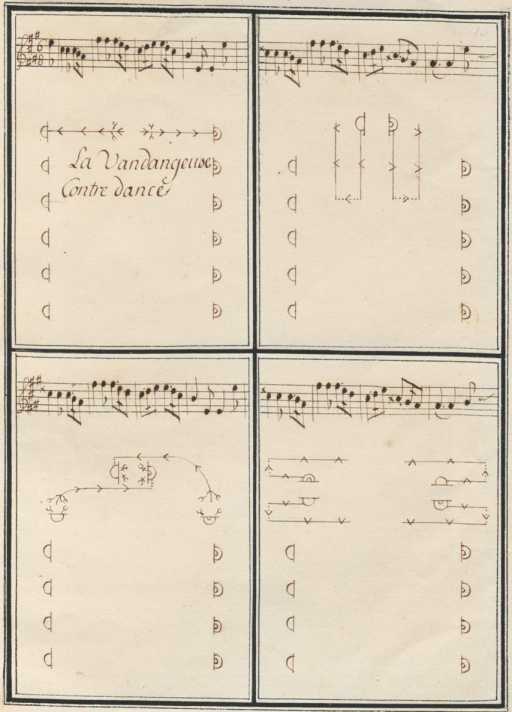 La Vandangeuse
Contre dance